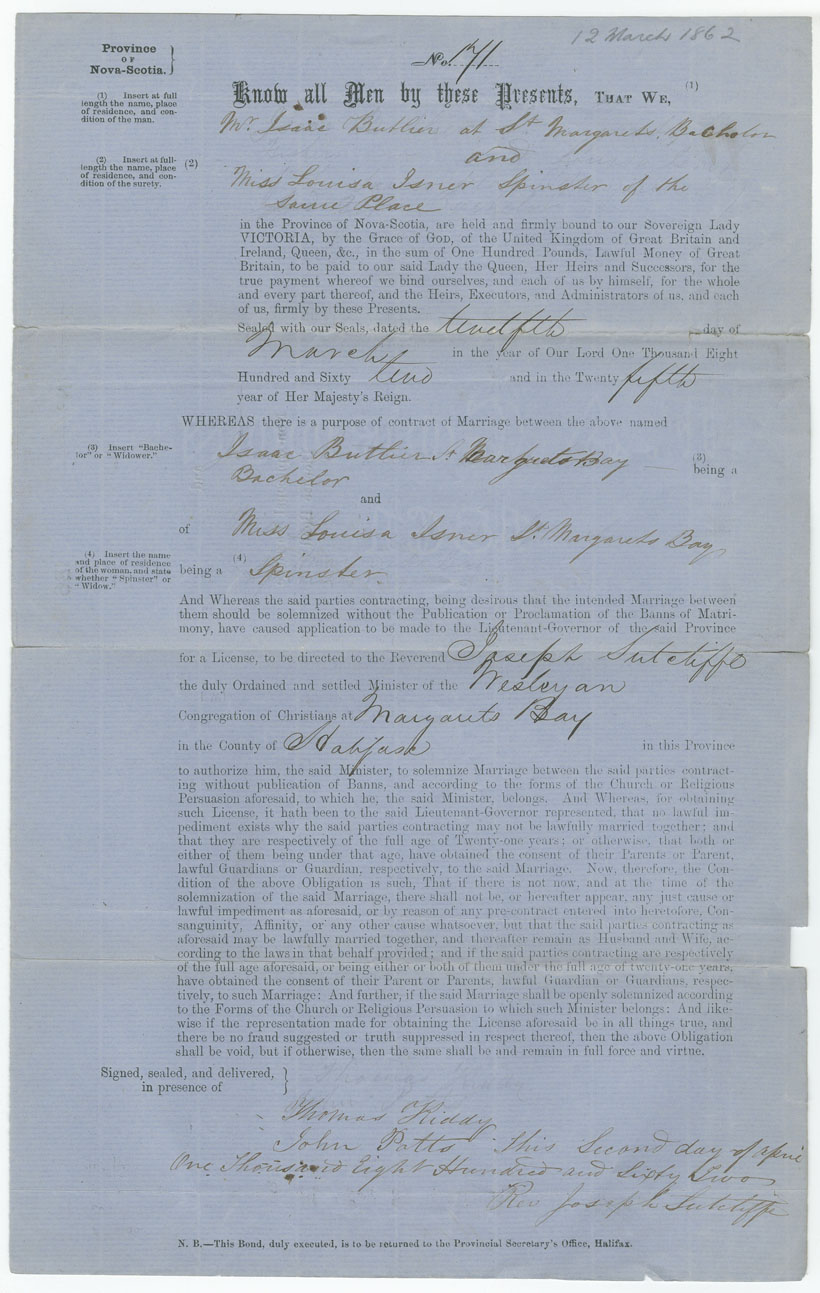 12 March 1862
Province
OF
Nova-Scotia.
No. 171
Know all Men by these Presents, THAT WE, (1)
(1) Insert at full
length the name, place
of residence, and con-
dition of the man.
Mr. Isaac Butlier at St Margarets, Bachelor
and
(2) Insert at full-
length the name, place
of residence, and con-
dition of the surety.
(2)
Miss Louisa Isner Spinster of the
Same Place
in the Province of Nova-Scotia, are held and firmly bound to our Sovereign Lady
VICTORIA, by the Grace of GOD, of the United Kingdom of Great Britain and
Ireland, Queen, &c., in the sum of One Hundred Pounds, Lawful Money of Great
Britain, to be paid to our said Lady the Queen, Her Heirs and Successors, for the
true payment whereof we bind ourselves, and each of us by himself, for the whole
and every part thereof, and the Heirs, Executors, and Administrators of us, and each
of us, firmly by these Presents.
Sealed with our Seals, dated the twelfth day of
March in the year of Our Lord One Thousand Eight
Hundred and Sixty two and in the Twenty fifth
year of Her Majesty's Reign.
WHEREAS there is a purpose of contract of Marriage between the above named
(3) Insert "Bache-
lor" or "Widower."
Isaac Butlier St Margrets Bay (3)
being a
Bachelor
and
of Miss Louisa Isner St. Margarets Bay
(4) Insert the name
and place of residence
of the woman, and state
whether "Spinster" or
"Widow."
being a (4) Spinster
And Whereas the said parties contracting, being desirous that the intended Marriage between
them should be solemnized without the Publication or Proclamation of the Banns of Matri-
mony, have caused application to be made to the Lieutenant-Governor of the said Province
for a License, to be directed to the Reverend Joseph Sutcliffe
the duly Ordained and settled Minister of the Wesleyan
Congregation of Christians at Margarets Bay
in the County of Halifax in this Province
to authorize him, the said Minister, to solemnize Marriage between the said parties contract-
ing without publication of Banns, and according to the forms of the Church or Religious
Persuasion aforesaid, to which he, the said Minister, belongs. And Whereas, for obtaining
such License, it hath been to the said Lieutenant-Governor represented, that no lawful im-
pediment exists why the said parties contracting may not be lawfully married together; and
that they are respectively of the full age of Twenty-one years; or otherwise, that both or
either of them being under that age, have obtained the consent of their Parents or Parent,
lawful Guardians or Guardian, respectively, to the said Marriage. Now, therefore, the Con-
dition of the above Obligation is such, That if there is not now, and at the time of the
solemnization of the said Marriage, there shall not be, or hereafter appear, any just cause or
lawful impediment as aforesaid, or by reason of any pre-contract entered into heretofore, Con-
sanguinity, Affinity, or any other cause whatsoever, but that the said parties contracting as
aforesaid may be lawfully married together, and thereafter remain as Husband and Wife, ac-
cording to the laws in that behalf provided; and if the said parties contracting are respectively
of the full age aforesaid, or being either or both of them under the full age of twenty-one years,
have obtained the consent of their Parent or Parents, lawful Guardian or Guardians, respec-
tively, to such Marriage: And further, if the said Marriage shall be openly solemnized according
to the Forms of the Church or Religious Persuasion to which such Minister belongs: And like-
wise if the representation made for obtaining the License aforesaid be in all things true, and
there be no fraud suggested or truth suppressed in respect thereof, then the above Obligation
shall be void, but if otherwise, then the same shall be and remain in full force and virtue.
Signed, sealed, and delivered,
in presence of
Thomas Kiddy
John Potts this Second day of april
One Thousand Eight Hundred and Sixty Two
Rev Joseph Sutcliffe
N. B.—This Bond, duly executed, is to be returned to the Provincial Secretary's Office, Halifax.